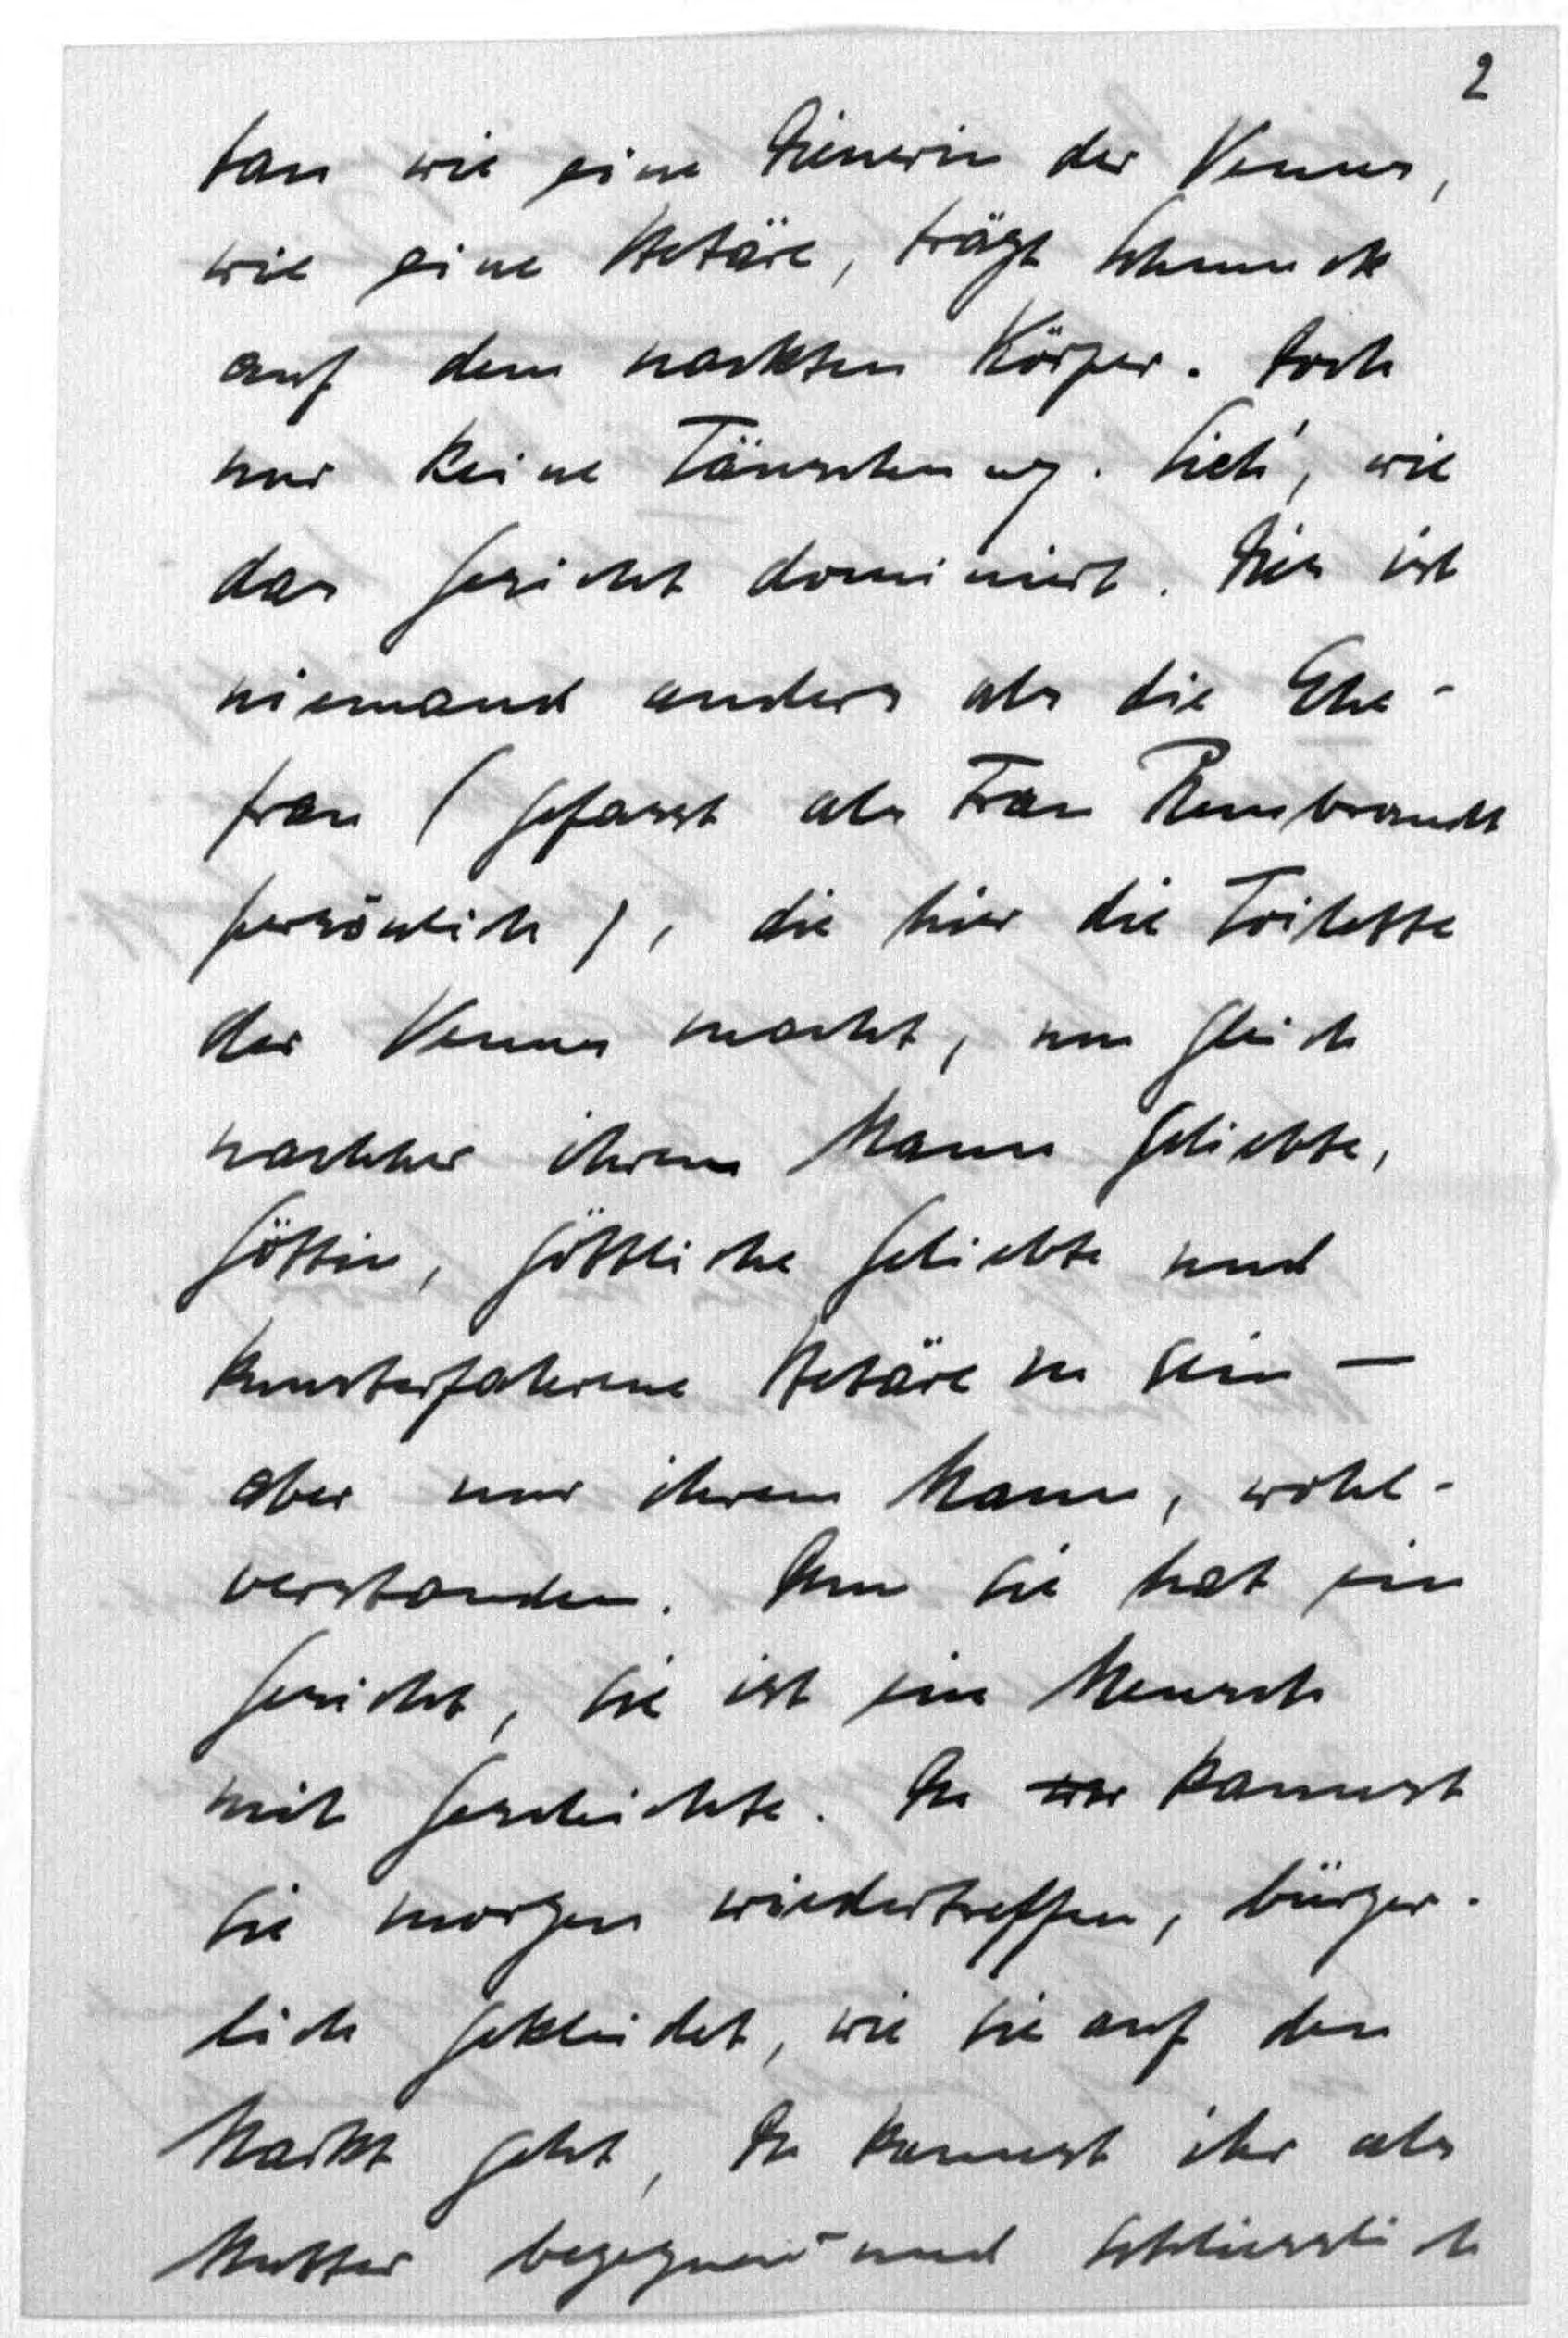 2
tan wie eine Dienerin der Venus,
wie eine Hetäre, trägt Schmuck
auf dem nackten Körper. Doch
nur keine Täuschung. Sieh', wie
das Gesicht dominiert. Dies ist
niemand anders als die Ehe-
frau (gefasst als Frau Rembrandt
persönlich), die hier die Toilette
der Venus macht, um gleich
nachher ihrem Mann Geliebte,
Göttin, göttliche Geliebte und
kunsterfahrene Hetäre zu sein —
aber nur ihrem Mann, wohl-
verstanden. Denn sie hat ein
Gesicht, sie ist ein Mensch
mit Geschichte. Du kannst
sie morgen wiedertreffen, bürger-
lich gekleidet, wie sie auf den
Markt geht, Du kannst ihr als
Mutter begegnen und schliesslich